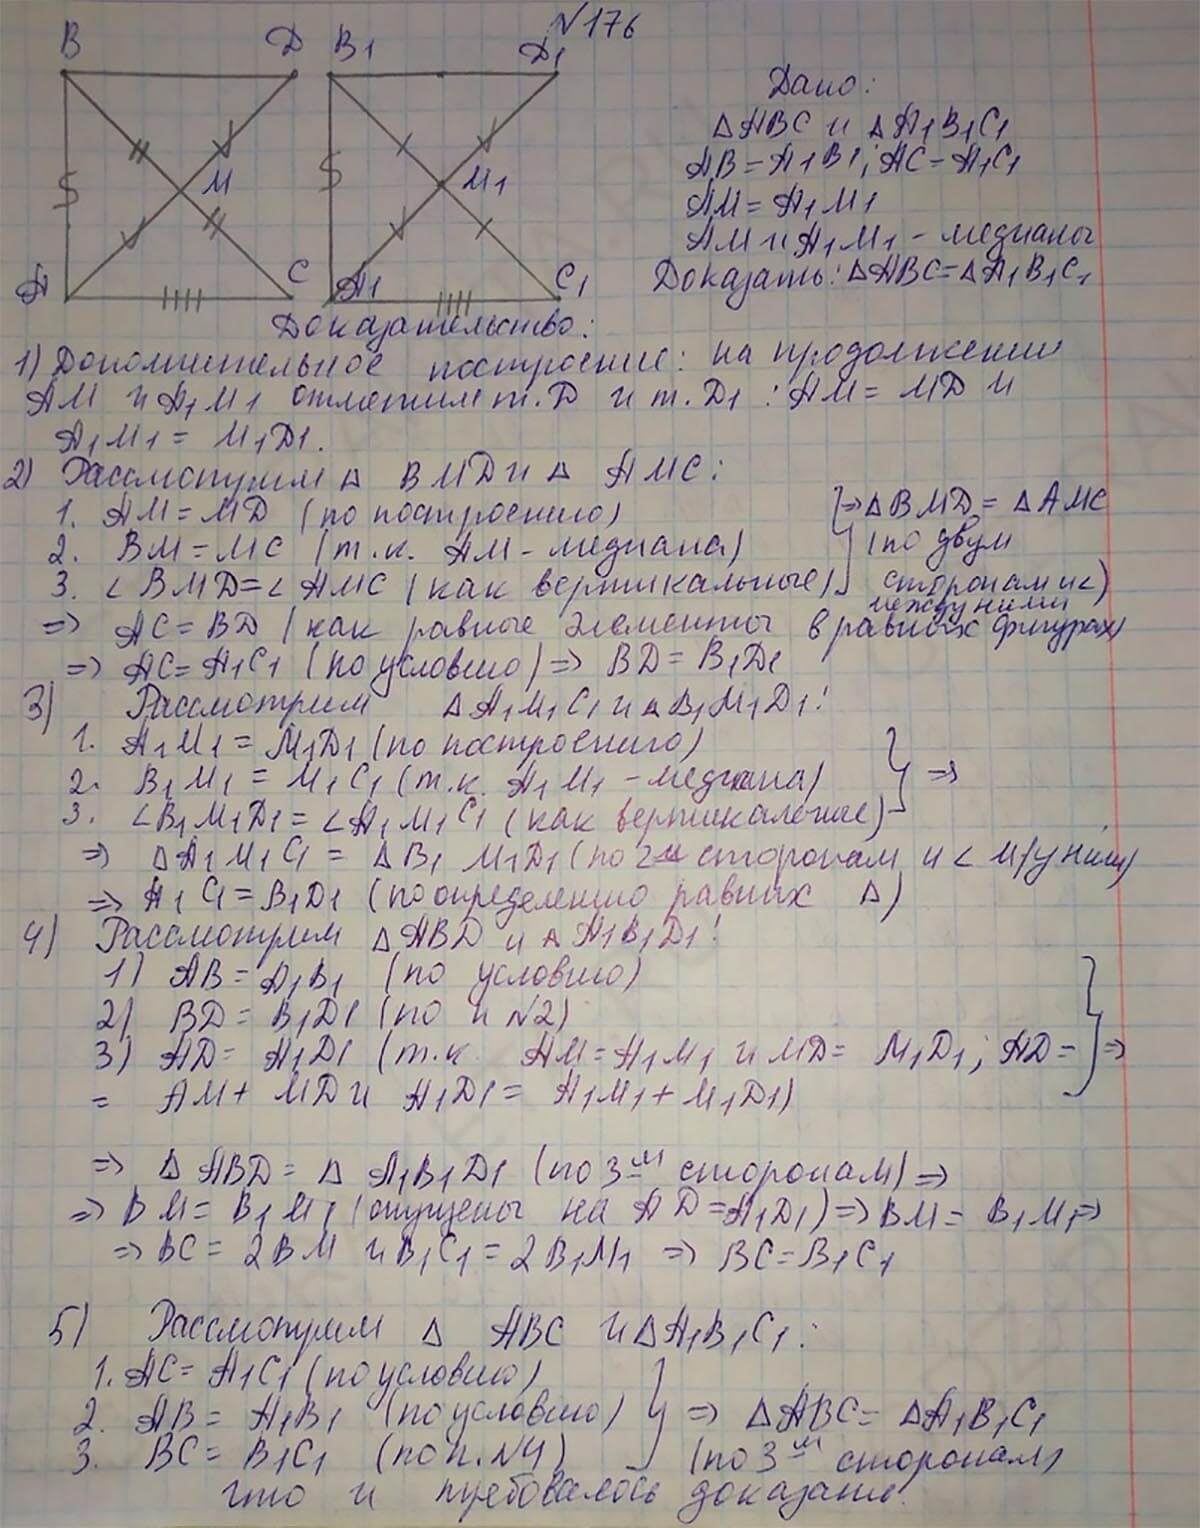 N176
B D B1 D1
M M1
A C A1 C1
Дано:
△ABC и △A1B1C1
AB=A1B1; AC=A1C1
AM=A1M1
AM и A1M1 - медианы
Доказать: △ABC=△A1B1C1
Доказательство:
1) Дополнительное построение: на продолжении
AM и A1M1 отметим т. D и т. D1 : AM = MD и
A1M1 = M1D1.
2) Рассмотрим △ BMD и △ AMC:
1. AM = MD (по построению)
2. BM = MC (т.к. AM - медиана)
3. ∠BMD=∠AMC (как вертикальные)
=> △BMD = △AMC
(по двум
сторонам и ∠)
между ними
=> AC = BD (как равные элементы в равных фигурах)
=> AC = A1C1 (по условию) => BD = B1D1
3) Рассмотрим △A1M1C1 и △B1M1D1!
1. A1M1 = M1D1 (по построению)
2. B1M1 = M1C1 (т.к. A1M1 - медиана)
3. ∠B1M1D1 = ∠A1M1C1 (как вертикальные)
=>
=> △A1M1C1 = △B1M1D1 (по 2м сторонам и ∠ м/у ними)
=> A1C1 = B1D1 (по определению равных △)
4) Рассмотрим △ABD и △A1B1D1!
1) AB = A1B1 (по условию)
2) BD = B1D1 (по п N2)
3) AD = A1D1 (т.к. AM = A1M1 и MD = M1D1; AD = =>
= AM + MD и A1D1 = A1M1 + M1D1)
=> △ABD = △A1B1D1 (по 3м сторонам) =>
=> BM = B1M1 (опущены на AD = A1D1) => BM = B1M1 =>
=> BC = 2BM и B1C1 = 2B1M1 => BC = B1C1
5) Рассмотрим △ ABC и △A1B1C1:
1. AC = A1C1 (по условию)
2. AB = A1B1 (по условию) => △ABC = △A1B1C1
3. BC = B1C1 (по п. N4) (по 3м сторонам)
что и требовалось доказать.